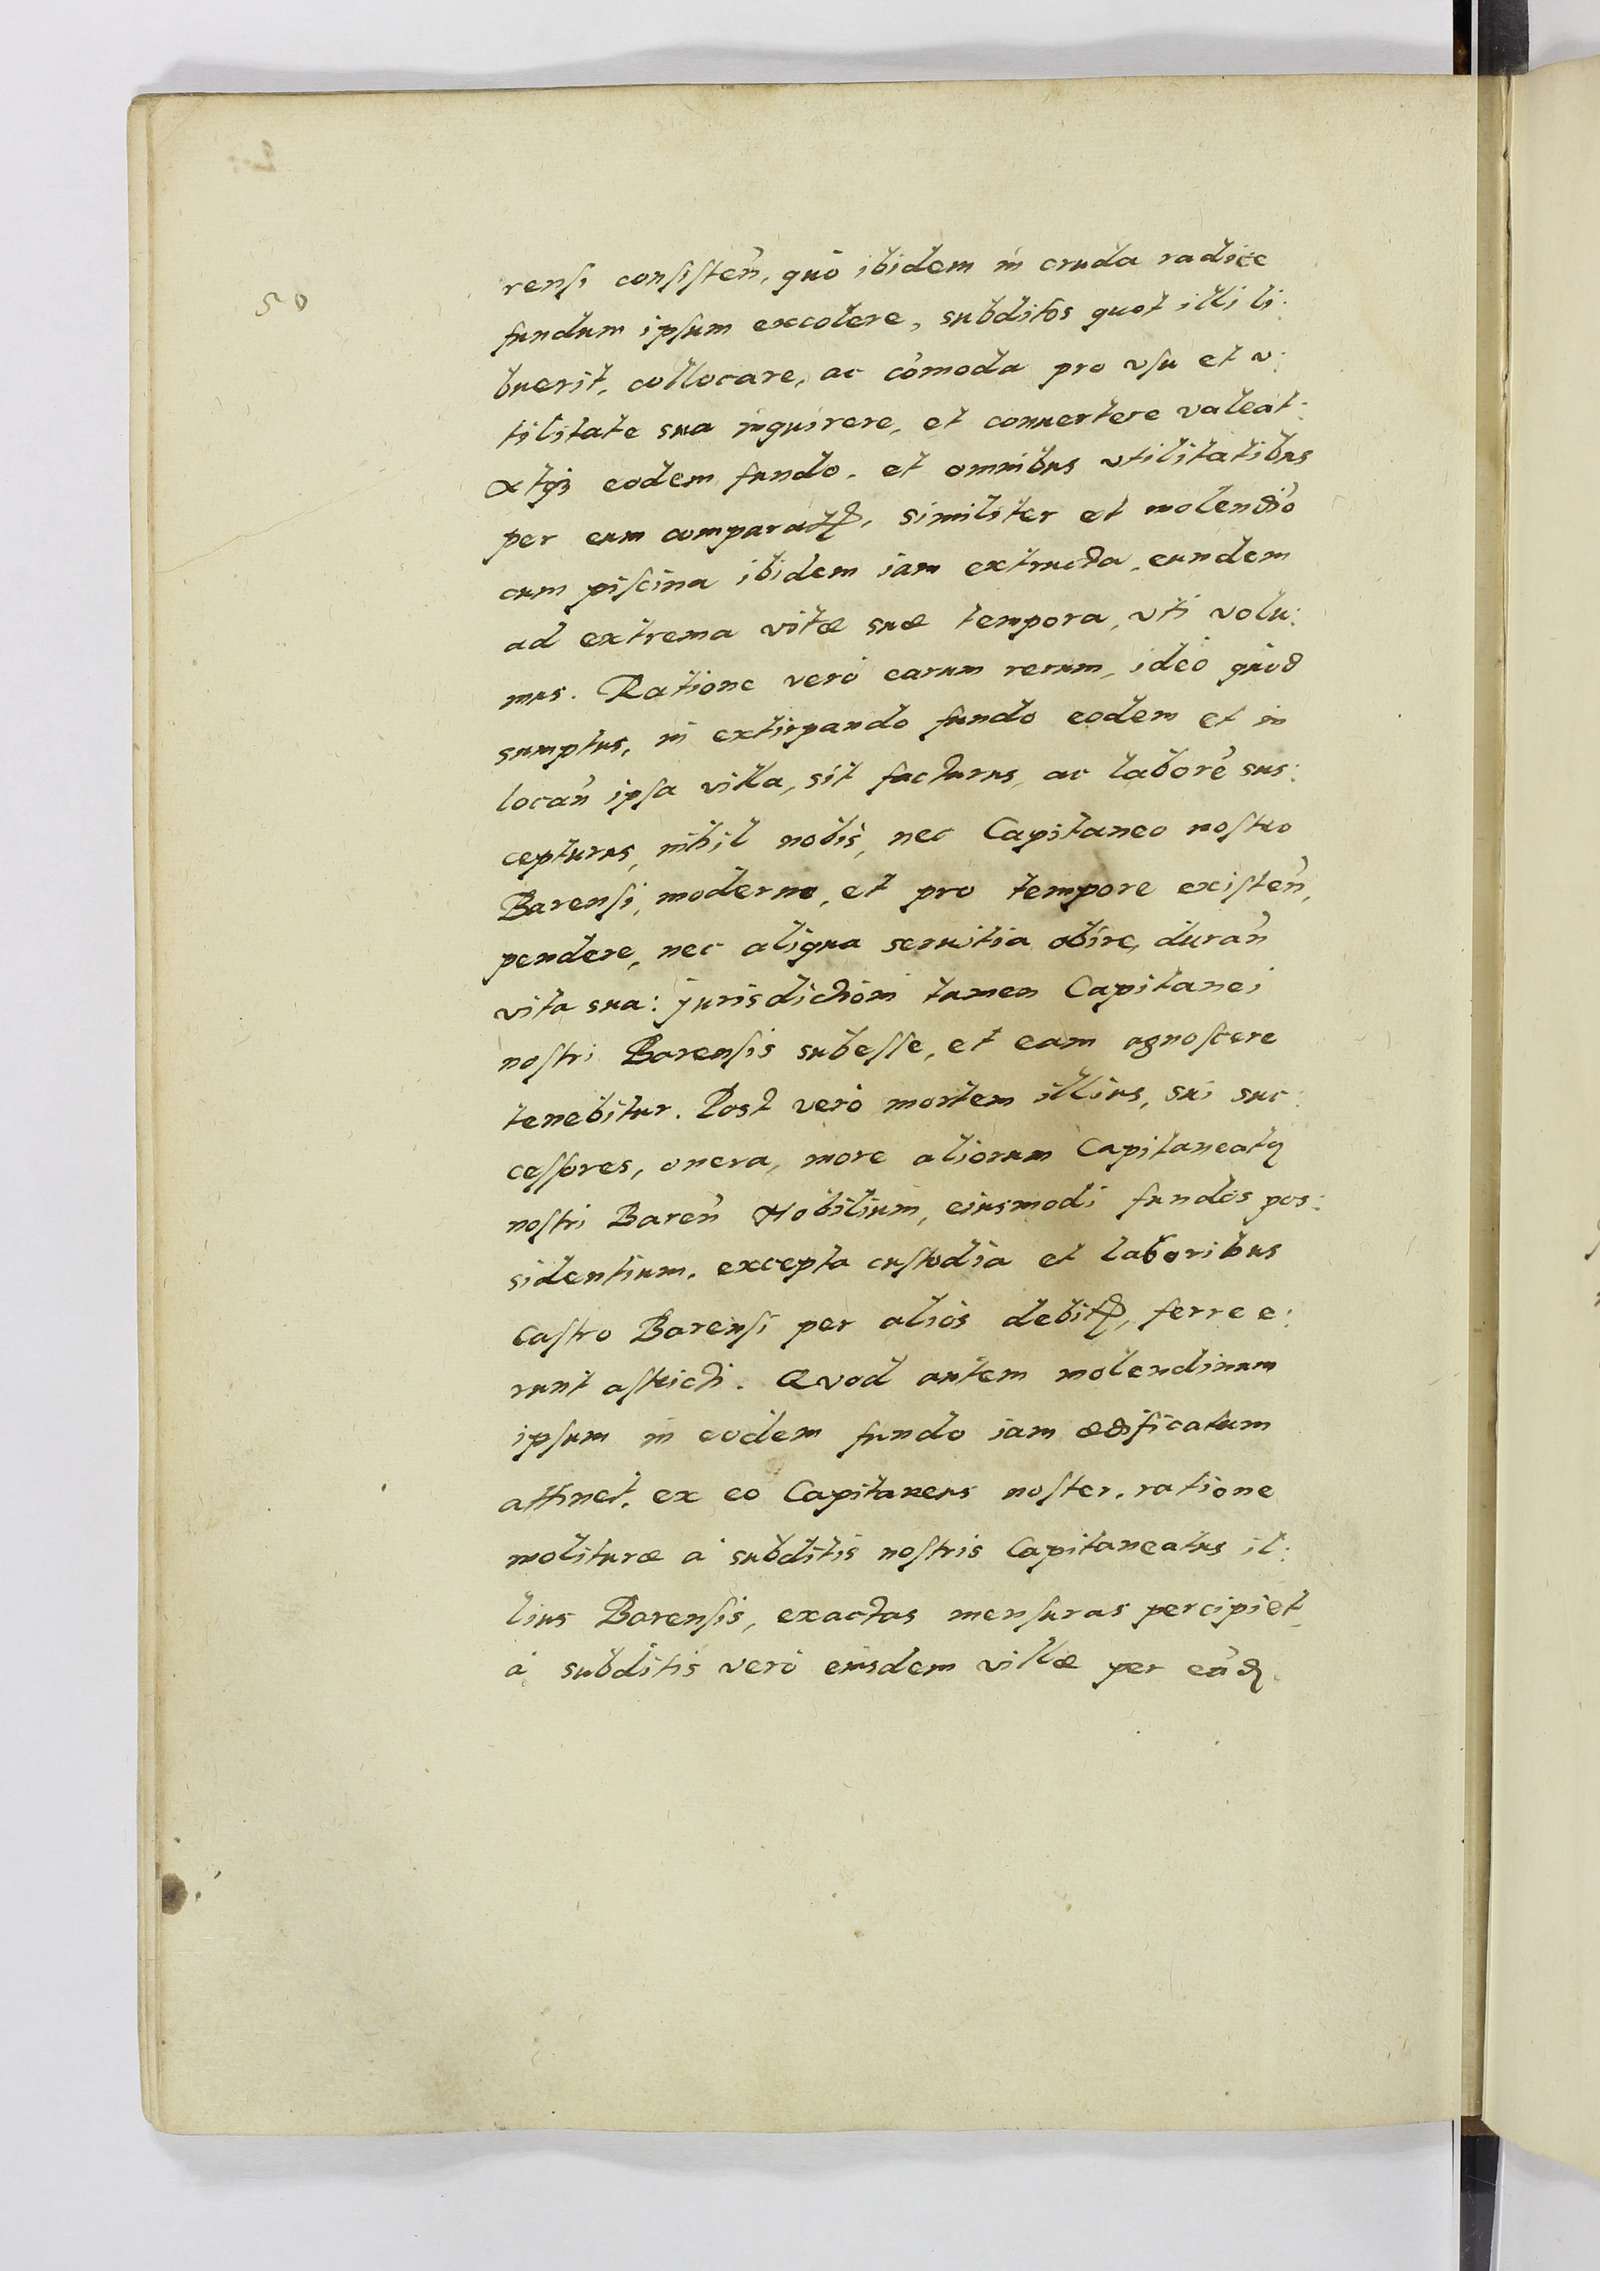 50
rensi consisteñ, quò ibidem in cruda radice
fundum ipsum excolere, subditos quot illi li:
buerit, collocare, ac com̃oda pro vsu et v:
tilitate sua inquirere, et conuertere valeat:
Atq3 eodem fundo, et omnibus vtilitatibus
per eum comparatꝭ, similiter et molendiõ
cum piscina ibidem iam extructa, eundem
ad extrema vitæ suæ tempora, vti volu:
mus. Ratione verò earum rerum, ideò quod
sumptus, in extirpando fundo eodem et in
locañ ipsa villa, sit facturus, ac laborẽ sus:
cepturus, nihil nobis, nec Capitaneo nostro
Barensi, moderno, et pro tempore existeñ,
pendere, nec aliqua seruitia obire, durañ
vita sua: jurisdictioni tamen Capitanei
nostri Barensis subesse, et eam agnoscere
tenebitur. Post verò mortem illius, sui suc:
cessores, onera, more aliorum Capitaneatꝯ
nostri Bareñ Nobilium, eiusmodi fundos pos:
sidentium, excepta custodia et laboribus
Castro Barensi per alios debitꝭ, ferre e:
runt astricti. Qvod autem molendinum
ipsum in eodem fundo iam ædificatum
attinet, ex eo Capitaneus noster, ratione
molituræ à subditis nostris Capitaneatus il:
lius Barensis, exactas mensuras percipiet,
à subditis verò eiusdem villæ per eũdꝫ